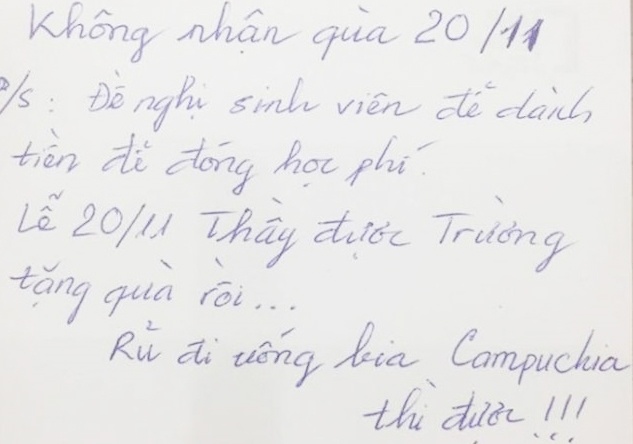 Không nhận quà 20/11
P/S: Đề nghị sinh viên để dành
tiền để đóng học phí.
Lễ 20/11 Thầy được Trường
tặng quà rồi...
Rủ đi uống bia Campuchia
thì được!!!